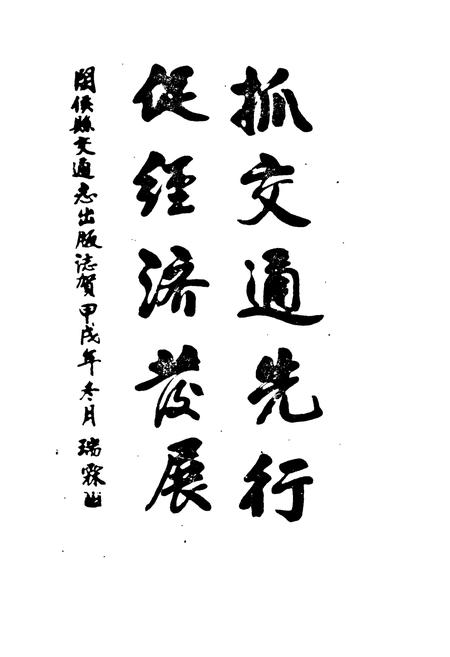 抓交通先行
促经济发展
闽侯縣交通志出版誌賀 甲戌年冬月 瑞霖